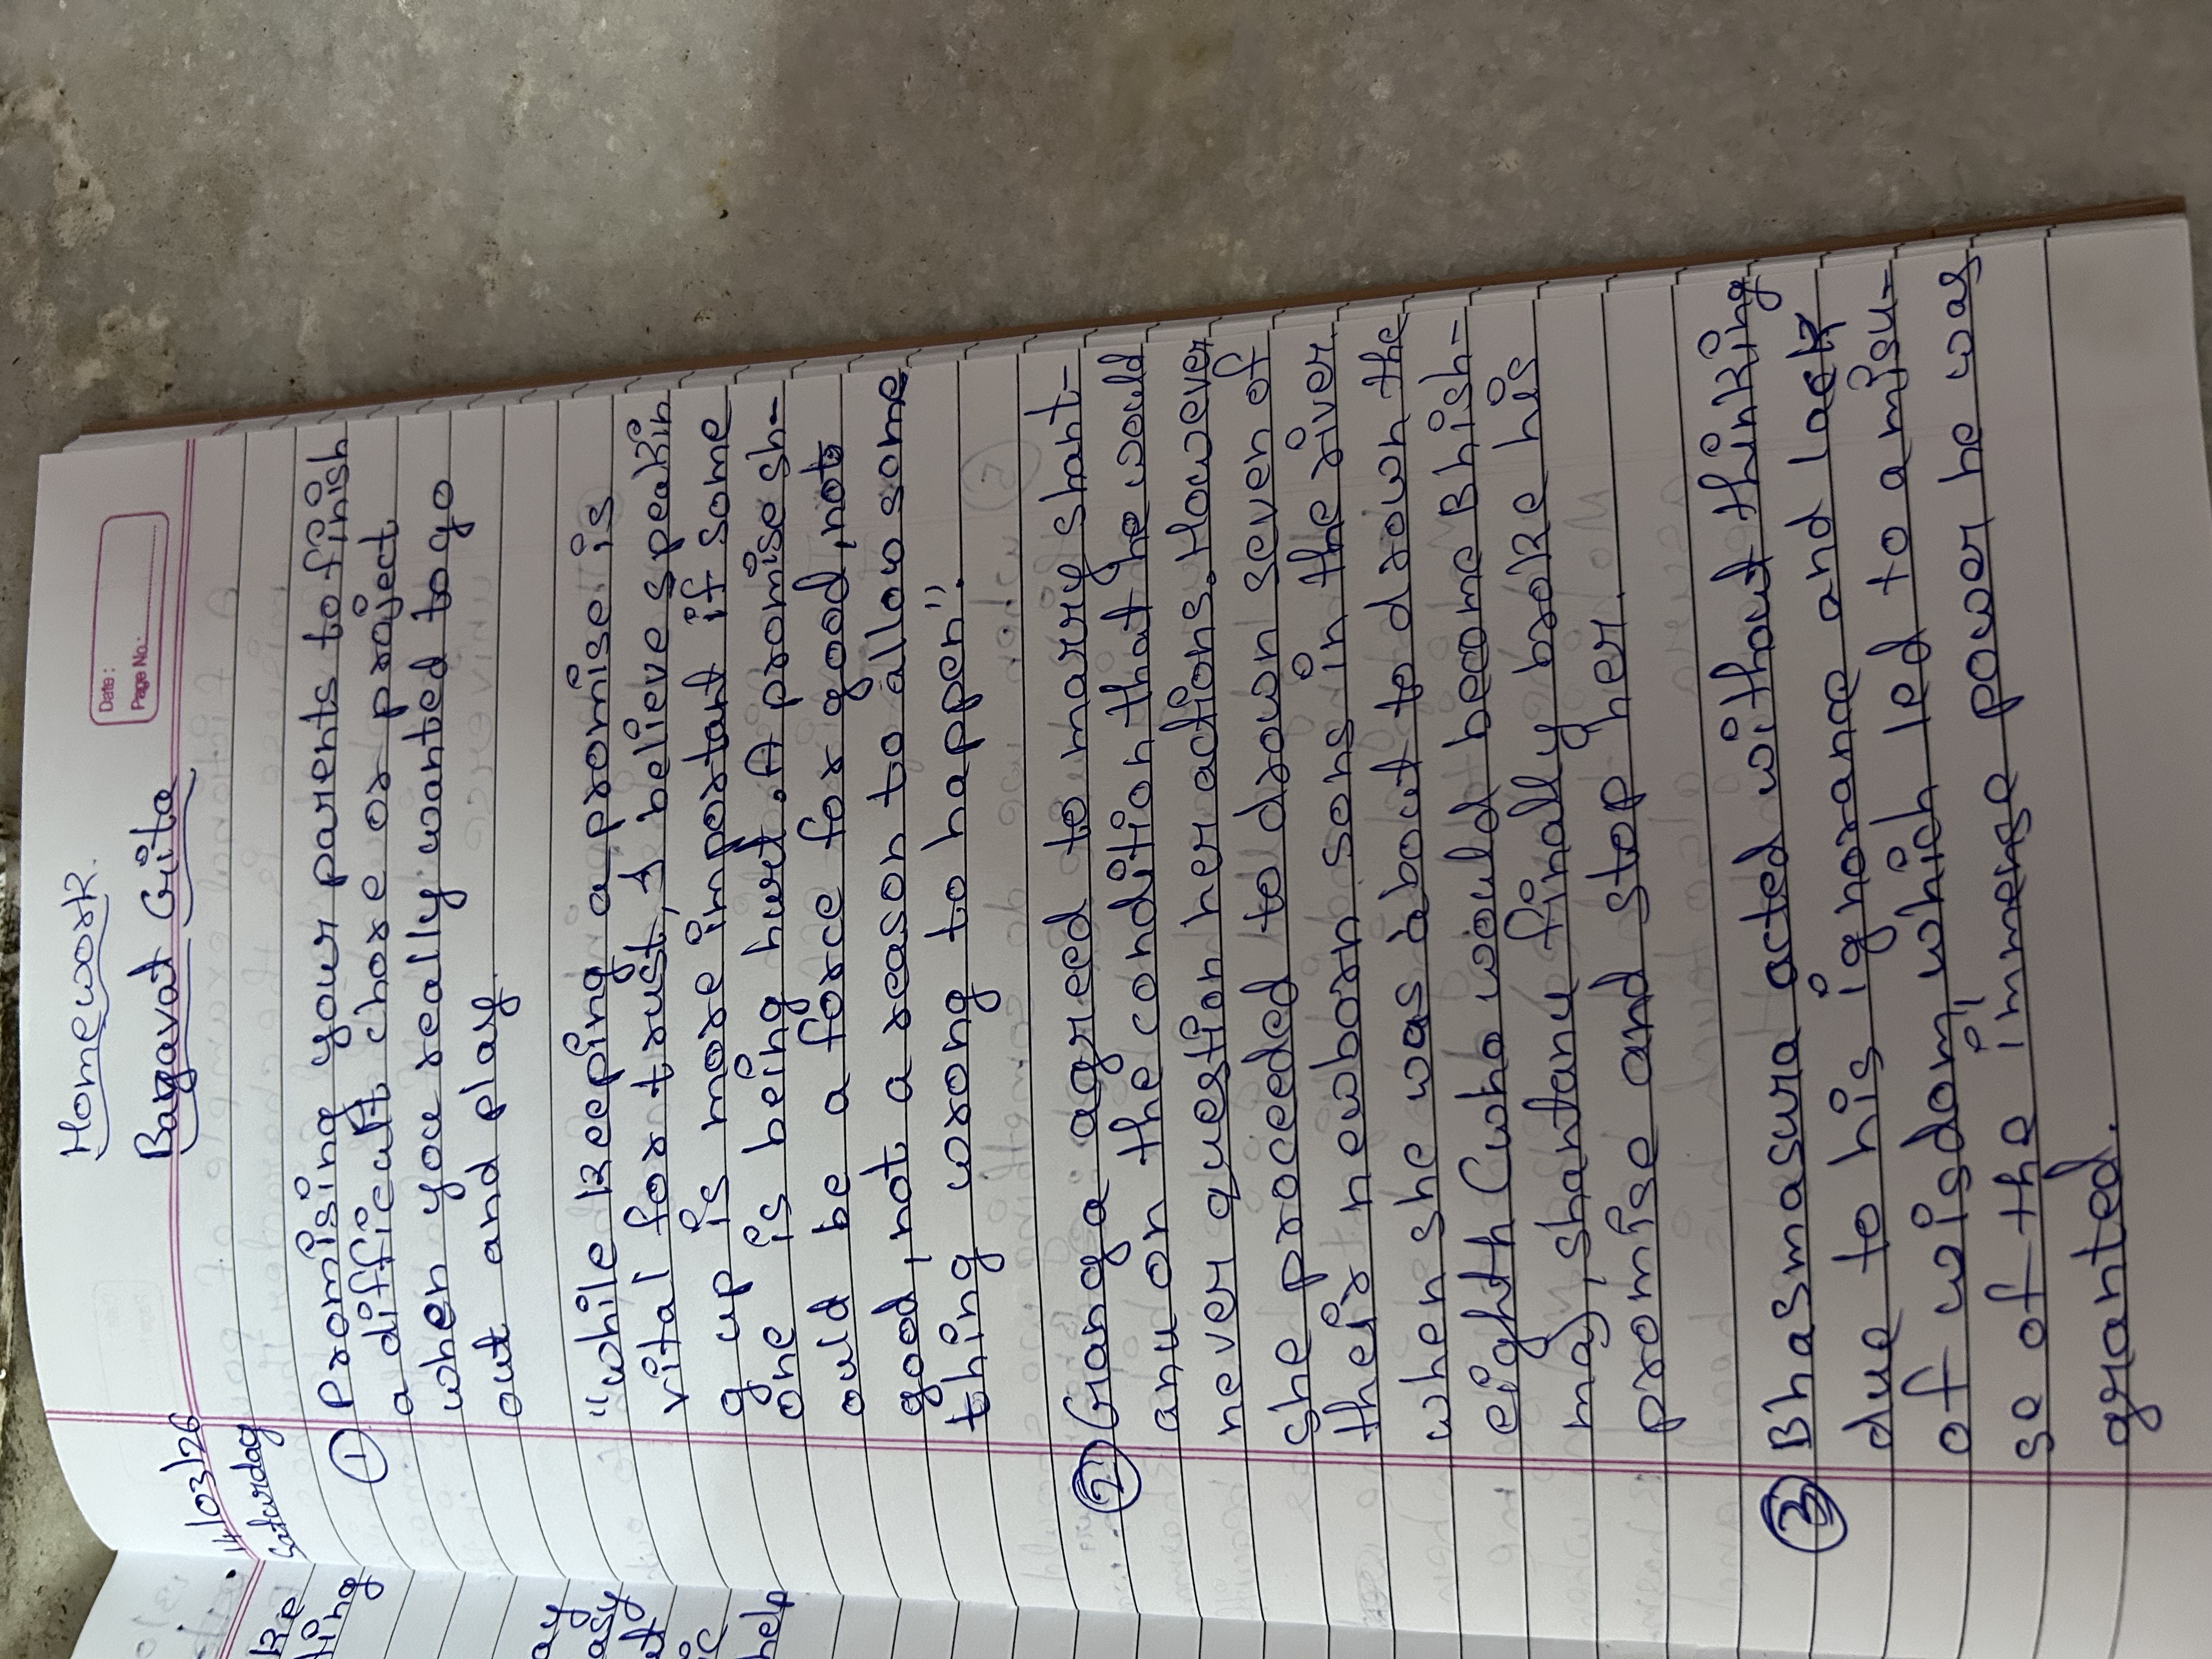 Homework.
Date:
Page No.:
Bagavat Gita
14/03/26
Saturday
① Promising your parents to finish
a difficult chore or project
when you really wanted to go
out and play.
"while keeping a promise is
vital for trust, I believe speakin
g up is more important if some
one is being hurt. A promise sh-
ould be a force for good, not
good, not a reason to allow some
thing wrong to happen".
② Ganga agreed to marry shant-
anu on the condition that he would
never question her actions. However
she proceeded to drown seven of
their newborn sons in the river
when she was about to drown the
eighth (who would become Bhish-
ma), Shantanu finally broke his
promise and stop her.
③ Bhasmasura acted without thinking
due to his ignorance and lack
of wisdom, which led to a misu-
se of the immense power he was
granted.
kie
thing
ay
asy
help